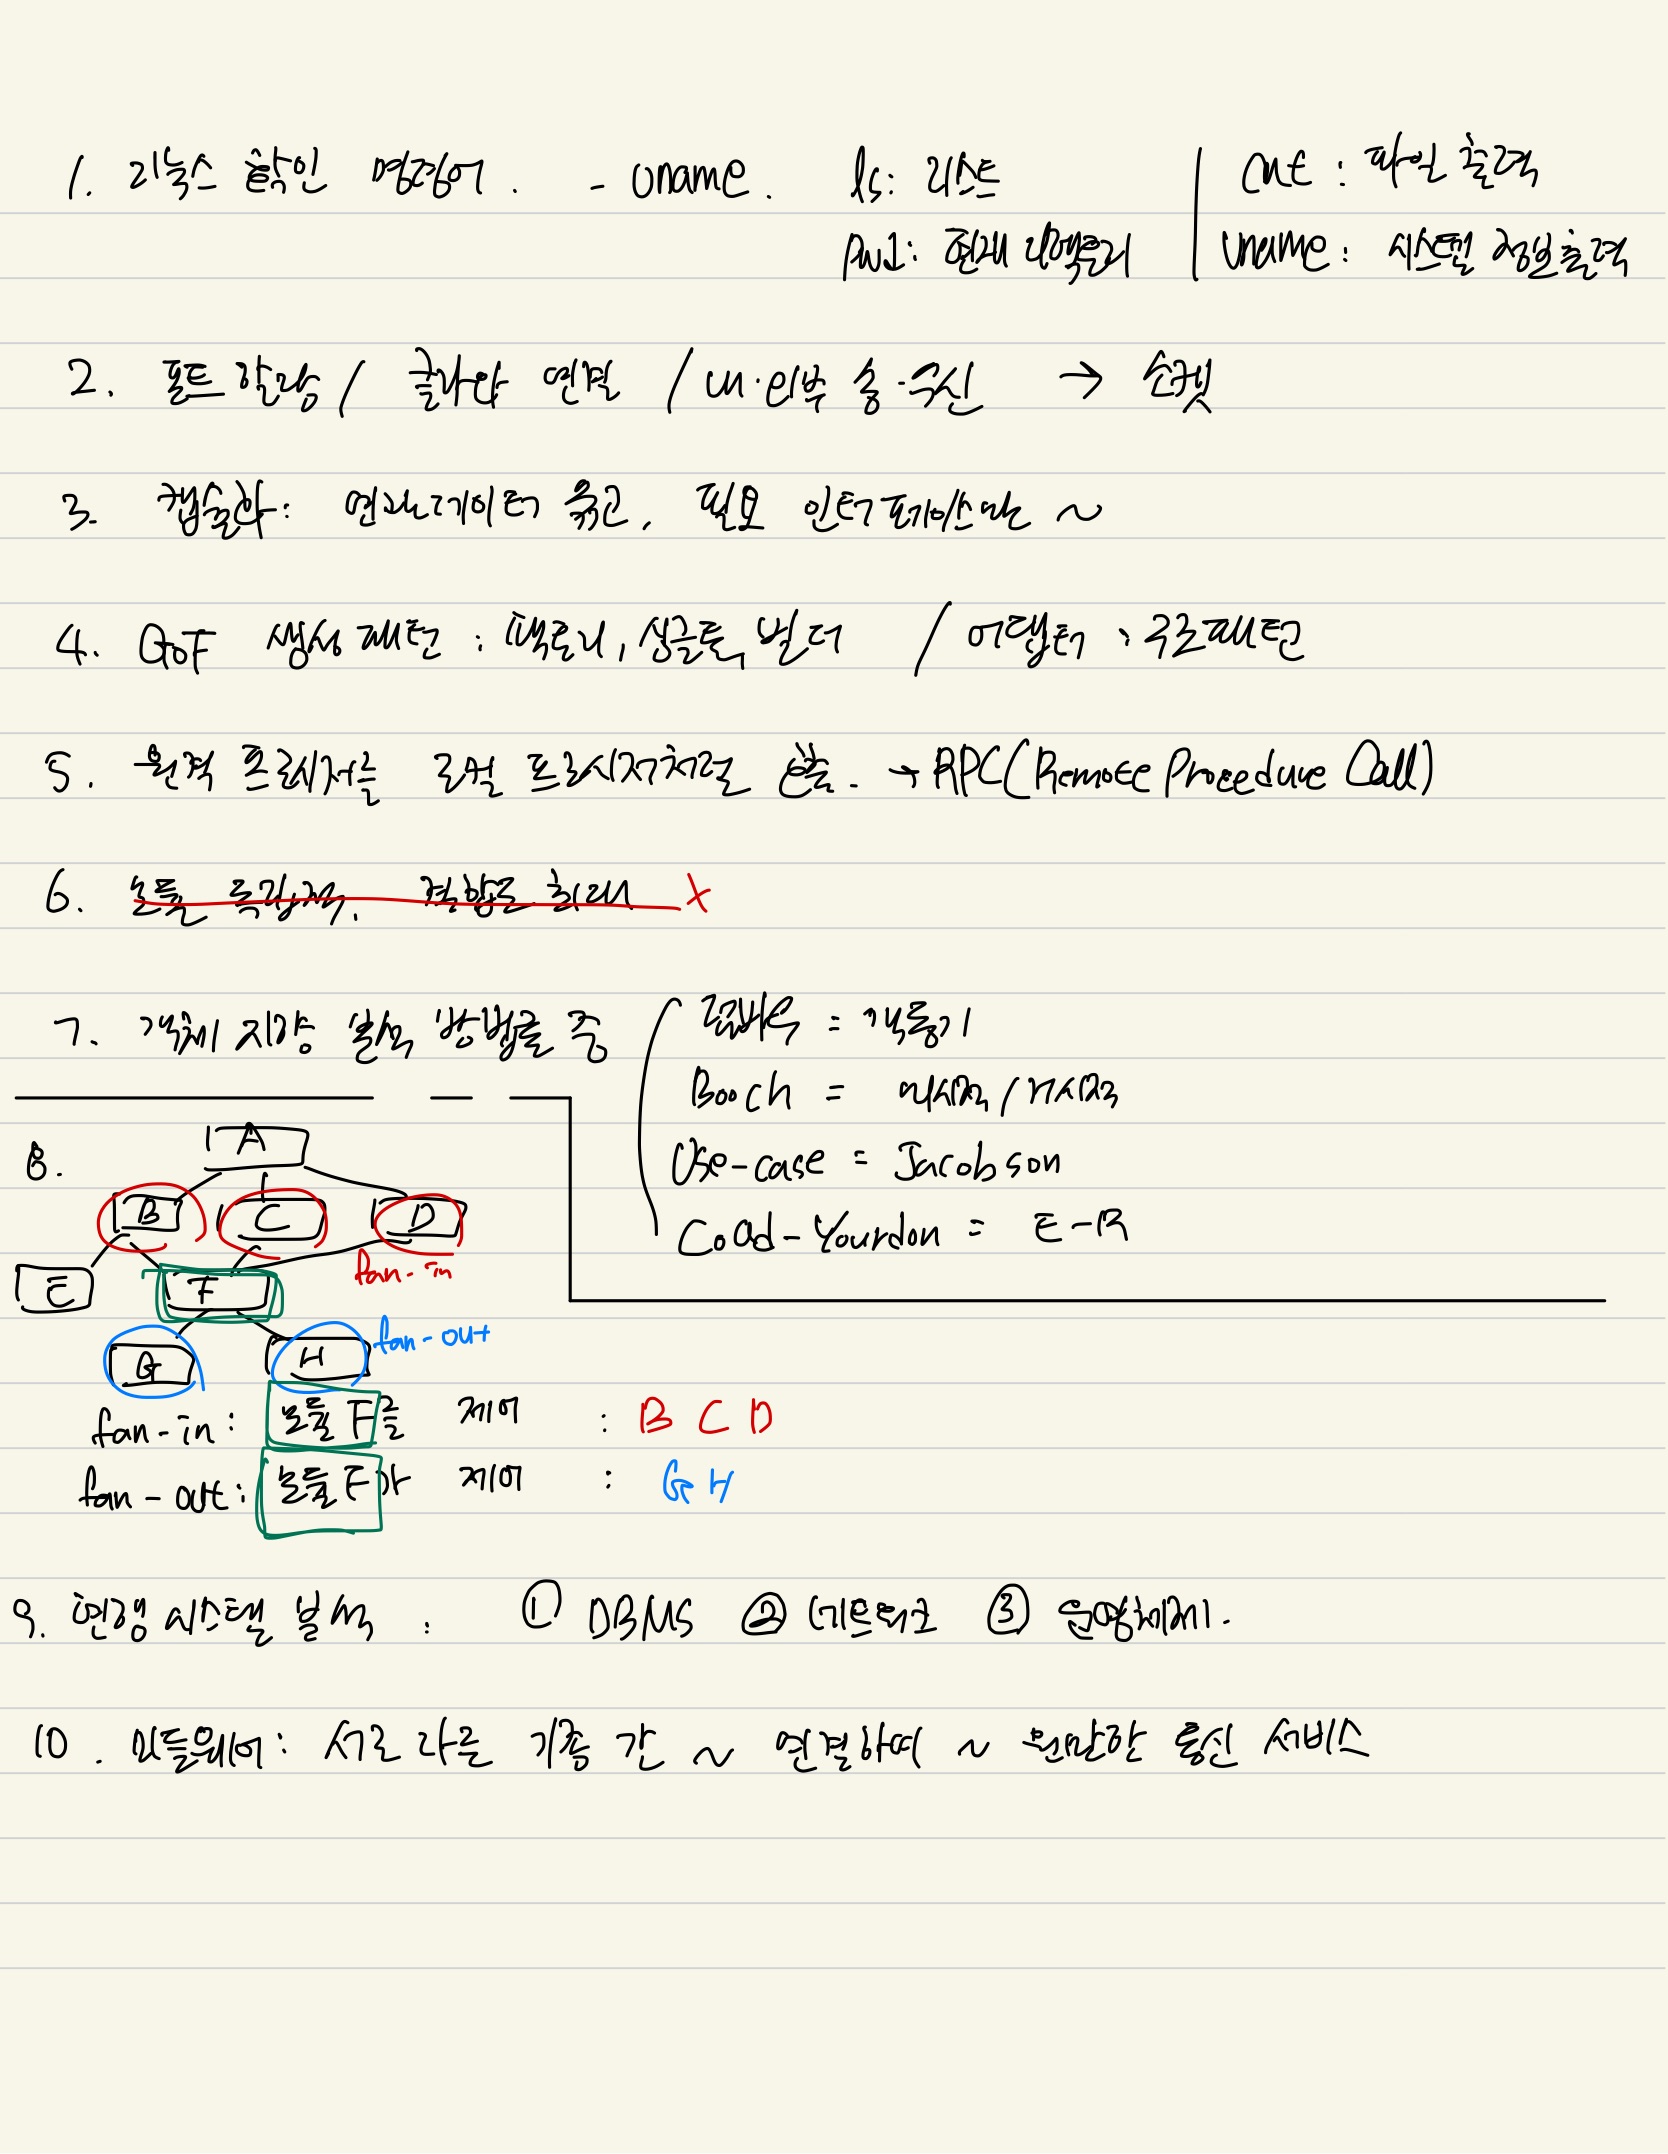 1. 리눅스 확인 명령어. - uname. ls: 리스트 cat : 파일 출력
pwd: 현재 디렉토리 uname: 시스템 정보 출력
2. 포트 할당 / 클라이언 연결 / 내·외부 송·수신 → 소켓
3. 캡슐화: 연관데이터 묶고, 필요 인터페이스만 ~
4. GoF 생성패턴 : 팩토리, 싱글톤, 빌더 / 어댑터 : 구조패턴
5. 원격 프로시저를 로컬 프로시저처럼 호출. → RPC(Remote Procedure Call)
6. 모듈 독립적, 결합도 최대 X
7. 객체 지향 분석 방법론 중 럼바우 = 객동기
Booch = 미시적 / 거시적
Use-case = Jacobson
Coad-Yourdon = E-R
8. A
B C D
fan-in
E F
fan-out
G H
fan-in: 모듈 F를 제어 : B C D
fan-out: 모듈 F가 제어 : G H
9. 현행 시스템 분석 : ① DBMS ② 네트워크 ③ 운영체제.
10. 미들웨어: 서로 다른 기종 간 ~ 연결하여 ~ 원만한 통신 서비스